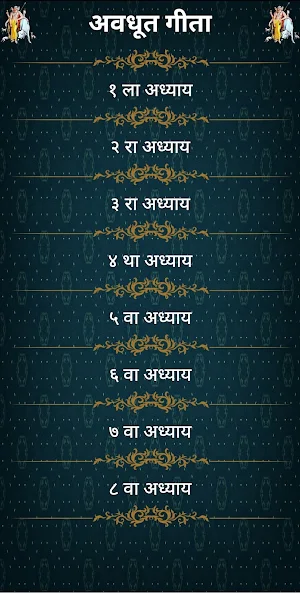 अवधूत गीता
१ ला अध्याय
२ रा अध्याय
३ रा अध्याय
४ था अध्याय
५ वा अध्याय
६ वा अध्याय
७ वा अध्याय
८ वा अध्याय